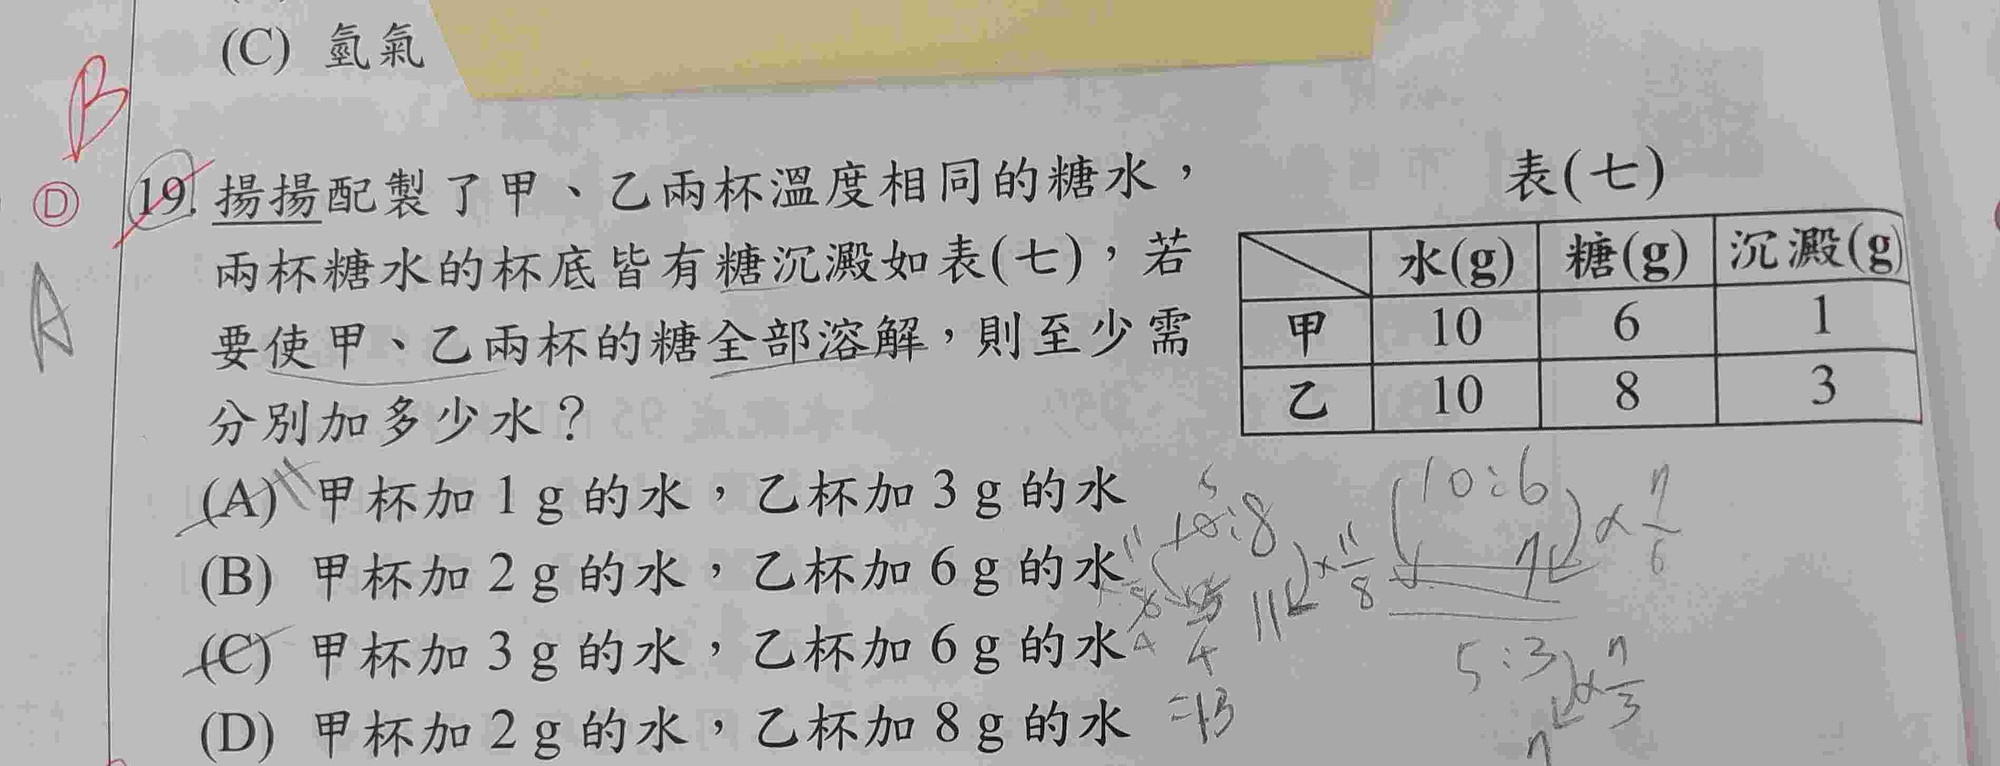 (C) 氫氣
B
D
A
19. 揚揚配製了甲、乙兩杯溫度相同的糖水，
兩杯糖水的杯底皆有糖沉澱如表(七)，若
要使甲、乙兩杯的糖全部溶解，則至少需
分別加多少水？
(A) 甲杯加 1 g 的水，乙杯加 3 g 的水
(B) 甲杯加 2 g 的水，乙杯加 6 g 的水
(C) 甲杯加 3 g 的水，乙杯加 6 g 的水
(D) 甲杯加 2 g 的水，乙杯加 8 g 的水
表(七)
水(g) 糖(g) 沉澱(g)
甲 10 6 1
乙 10 8 3
10:6
7
×7/6
10:8
11
×11/8
5:3
×7/3
7
=13